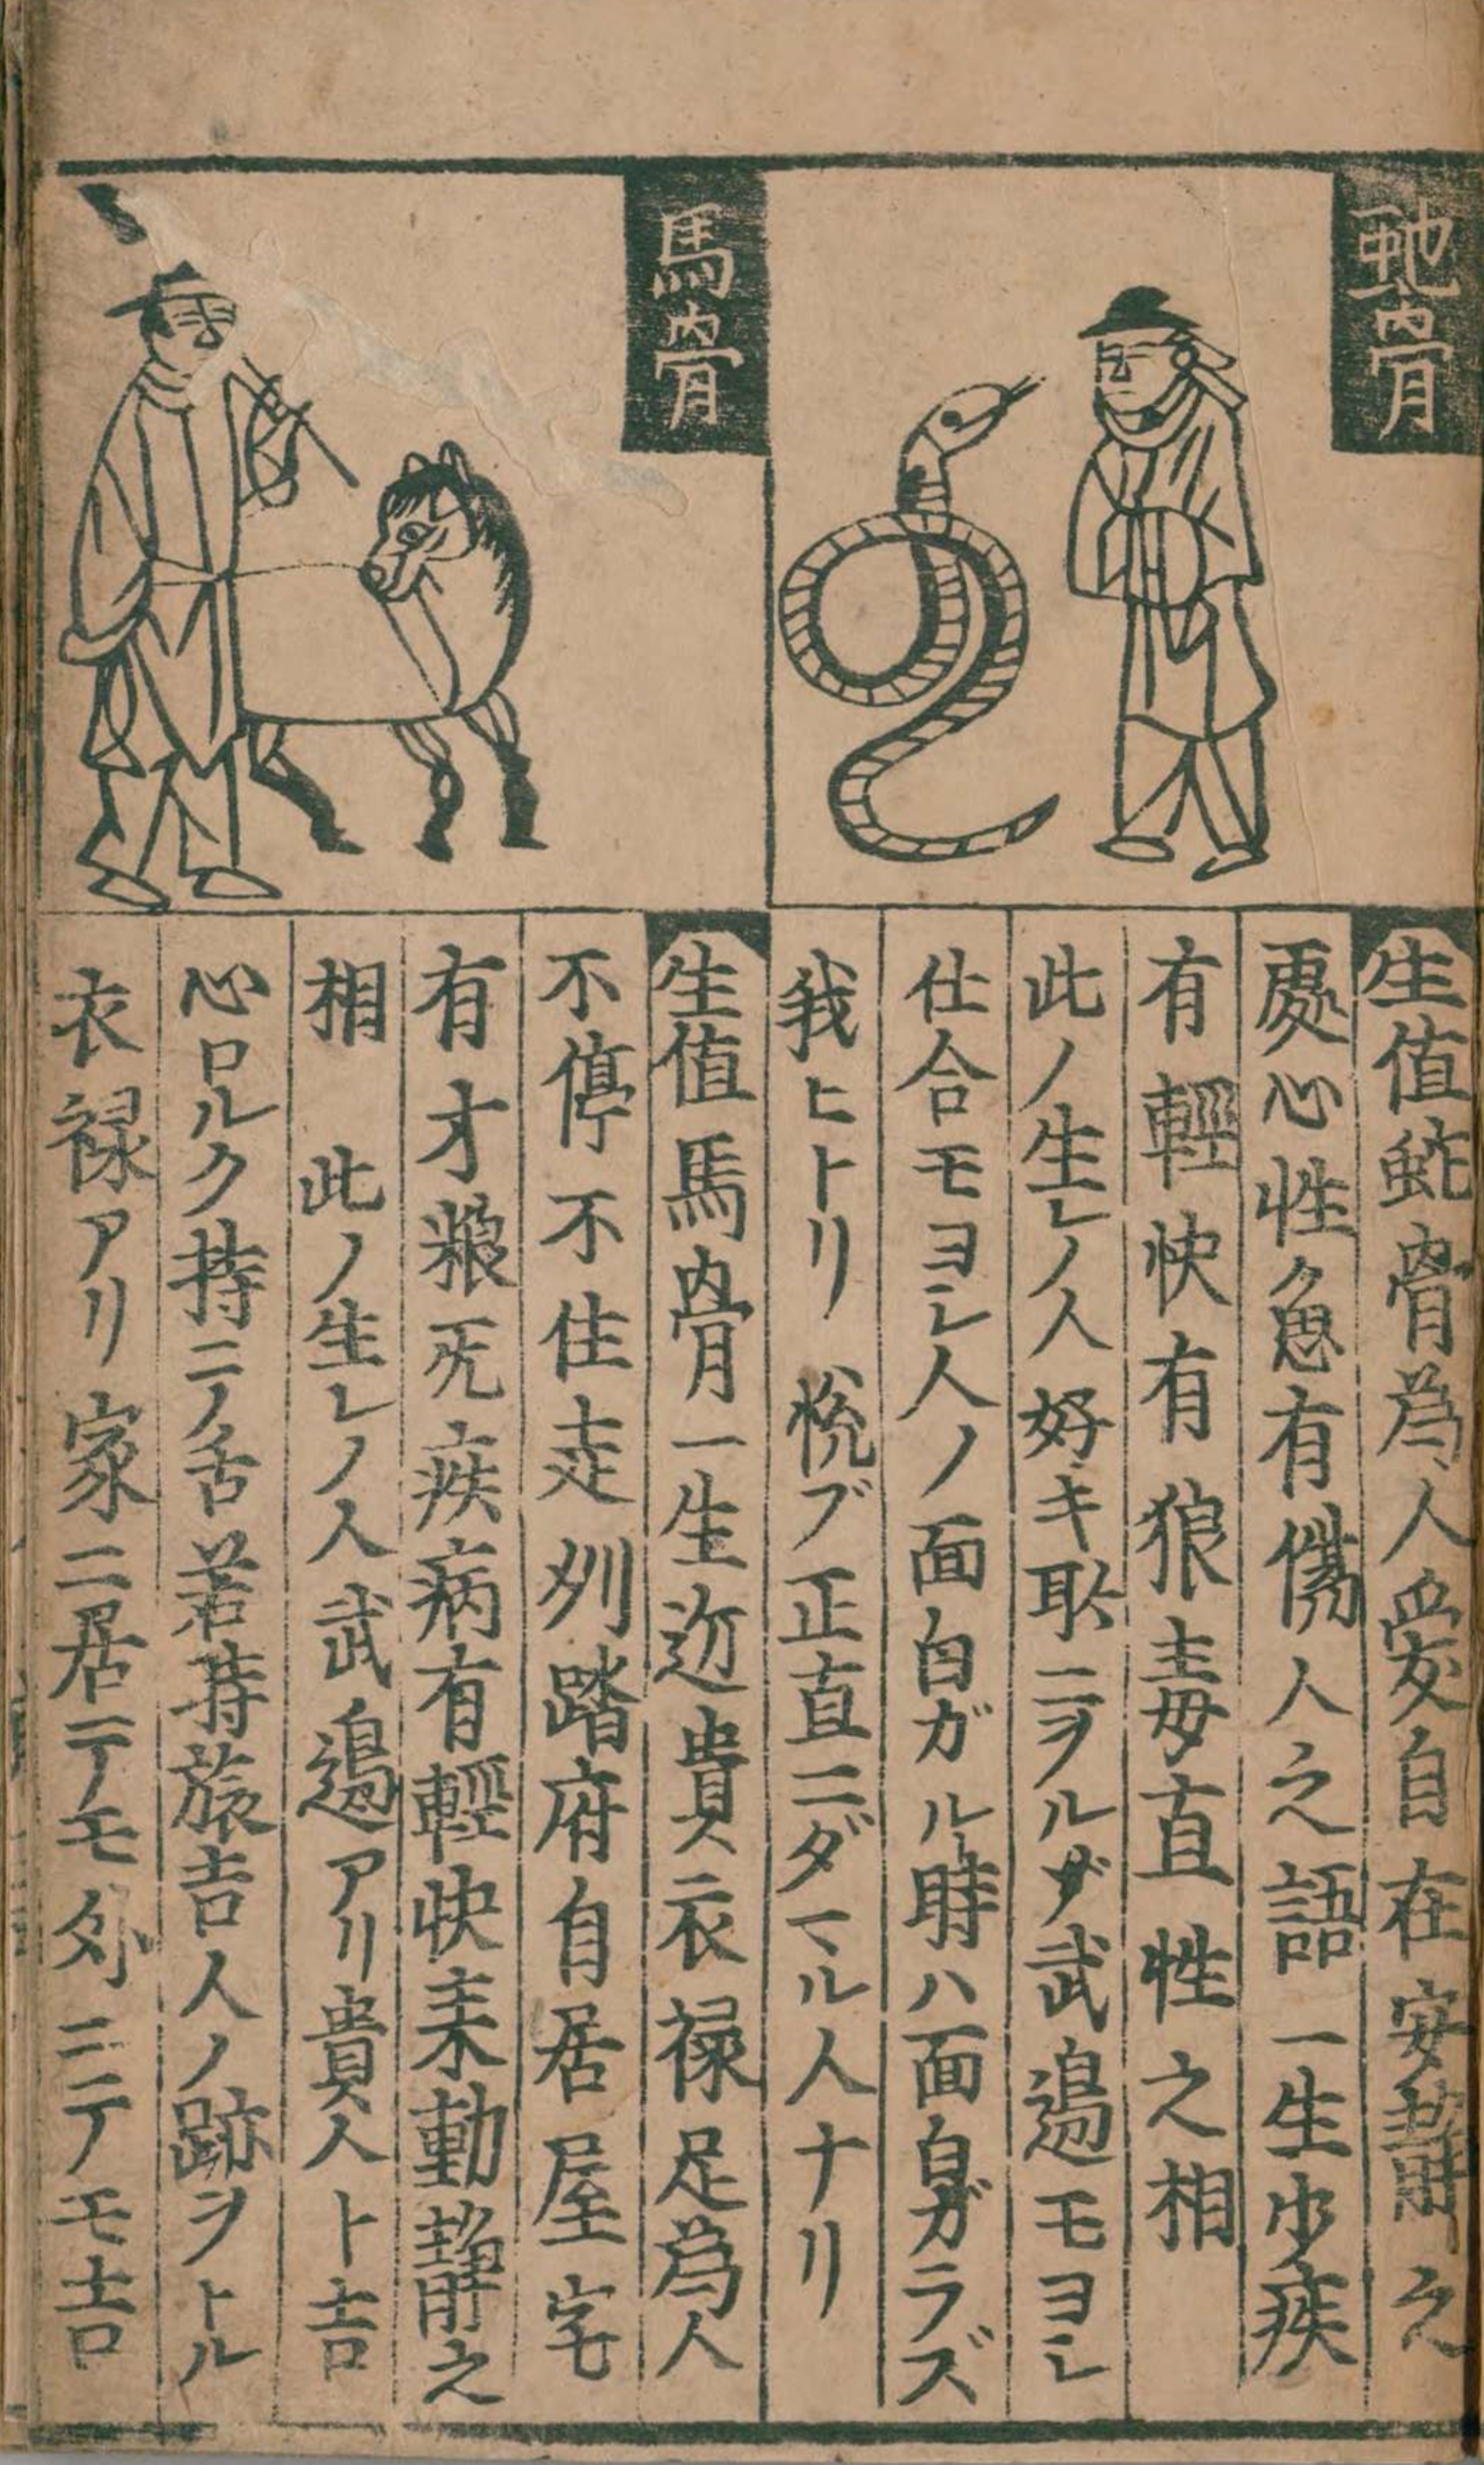 虵骨
生值蛇骨為人愛自在安靜之
處心性急有傷人之語一生少疾
有輕快有狼毒直性之相
此ノ生レノ人好キ耿ニヲルゾ武邉モヨシ
仕合モヨシ人ノ面白ガル時ハ面白ガラズ
我ヒトリ悦ブ正直ニダマル人ナリ
馬骨
生值馬骨一生近貴衣禄足為人
不停不住走州踏府自居屋宅
有才粮旡疾病有輕快耒動靜之
相 此ノ生レノ人武邉アリ貴人ト吉
心ロルク持ニノ舌若持旅吉人ノ跡ヲトル
衣禄アリ家ニ居テモ外ニテモ吉